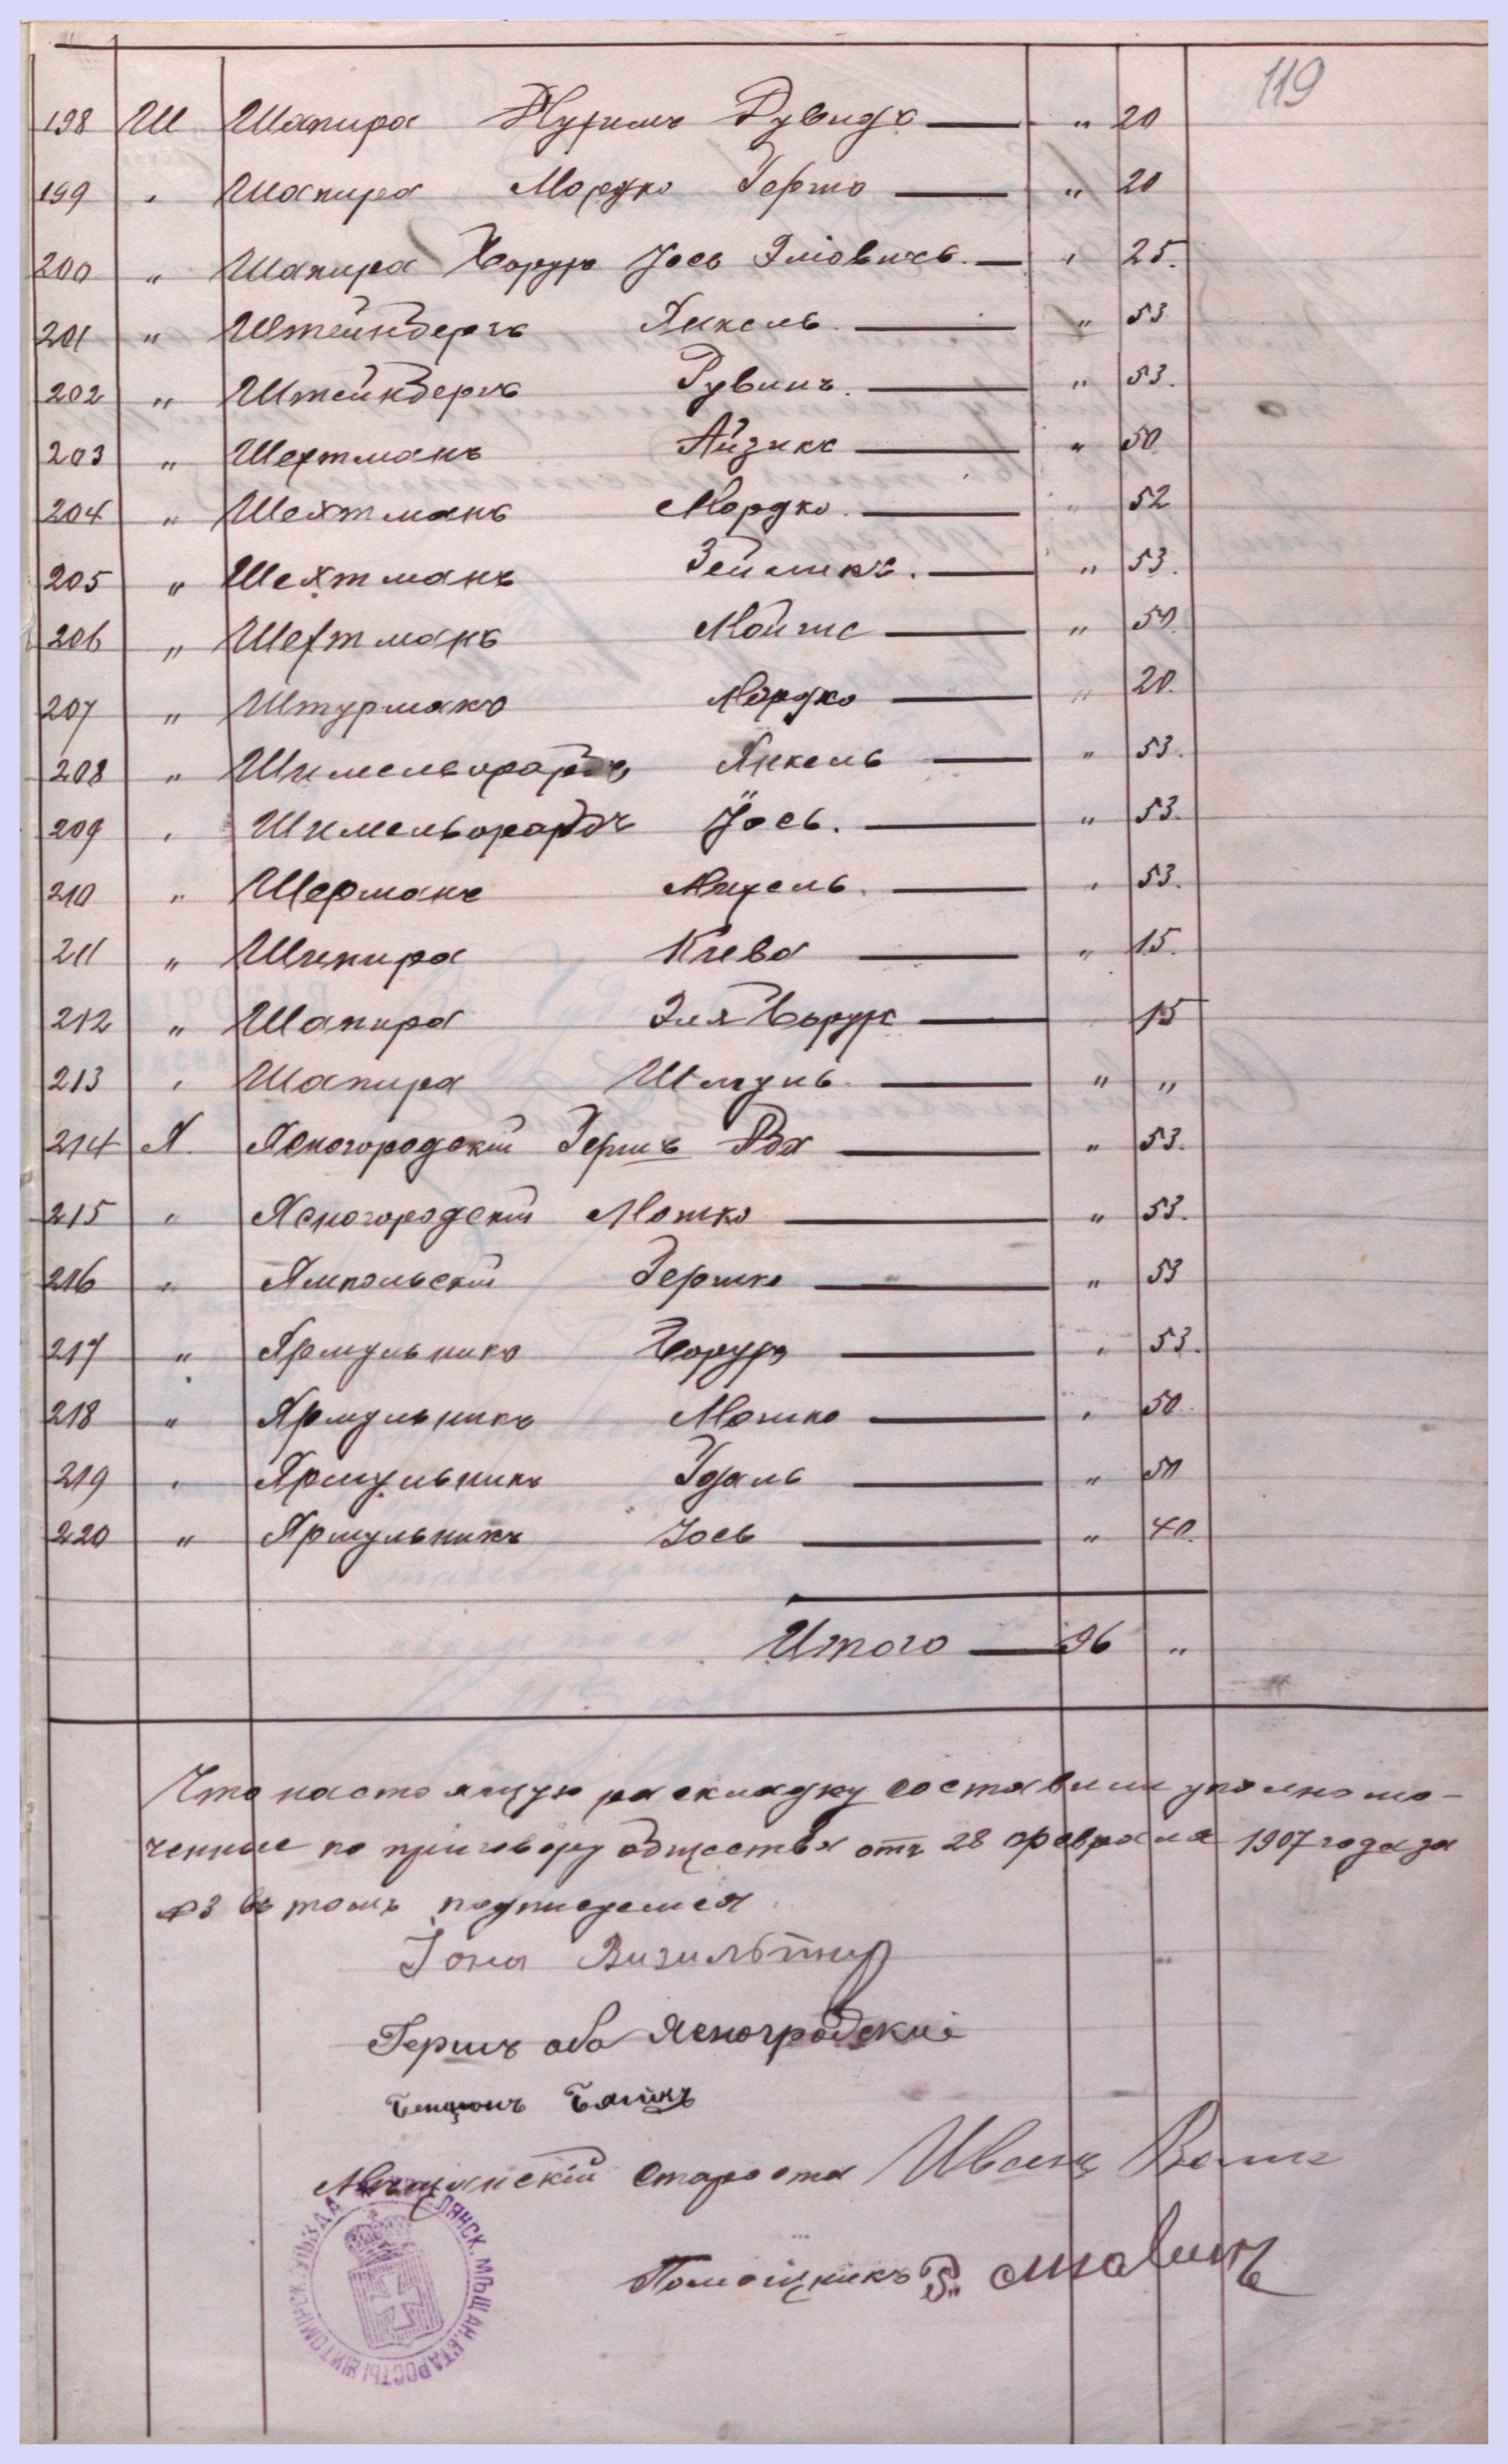 119
198 Ш Шапира Нухимъ Дувидъ — „ 20
199 „ Шапира Мордко Гершо — „ 20
200 „ Шапира Борухъ Іось Эліовичъ. — „ 25.
201 „ Штейнбергъ Янкель. — „ 53
202 „ Штейнбергъ Рувинъ. — „ 53.
203 „ Шехтманъ Айзикъ — „ 50
204 „ Шехтманъ Мордко. — „ 52
205 „ Шехтманъ Зейликъ. — „ 53.
206 „ Шехтманъ Мойше — „ 50.
207 „ Штурманъ Мордко — „ 20.
208 „ Янкель — „ 53.
209 „ Іось. — „ 53.
210 „ Шерманъ Михель. — „ 53.
211 „ Шапира Кива — „ 15.
212 „ Шапира Эля Борухъ — 15
213 „ Шапира Шмуль. — „ „
214 Я. Ясногородскій Гершъ Аба — „ 53.
215 „ Ясногородскій Мошко — „ 53.
216 „ Ямпольскій Гершко — „ 53
217 „ Ярмульникъ Борухъ — „ 53.
218 „ Ярмульникъ Мошко — „ 50.
219 „ Ярмульникъ Удаль — „ 50
220 „ Ярмульникъ Іось — „ 40.
Итого — 96 „
Что настоящую раскладку составили уполномо-
ченные по приговору общества отъ 28 февраля 1907 года за
№3 въ томъ подписуемся
Іона
Гершъ аба Ясногродскиі
Бенционъ
Мѣщанскій староста Иванъ
Помощникъ
ЛЯНСК. МѢЩАН. СТАРОСТЫ ЖИТОМІРСК. УѢЗДА